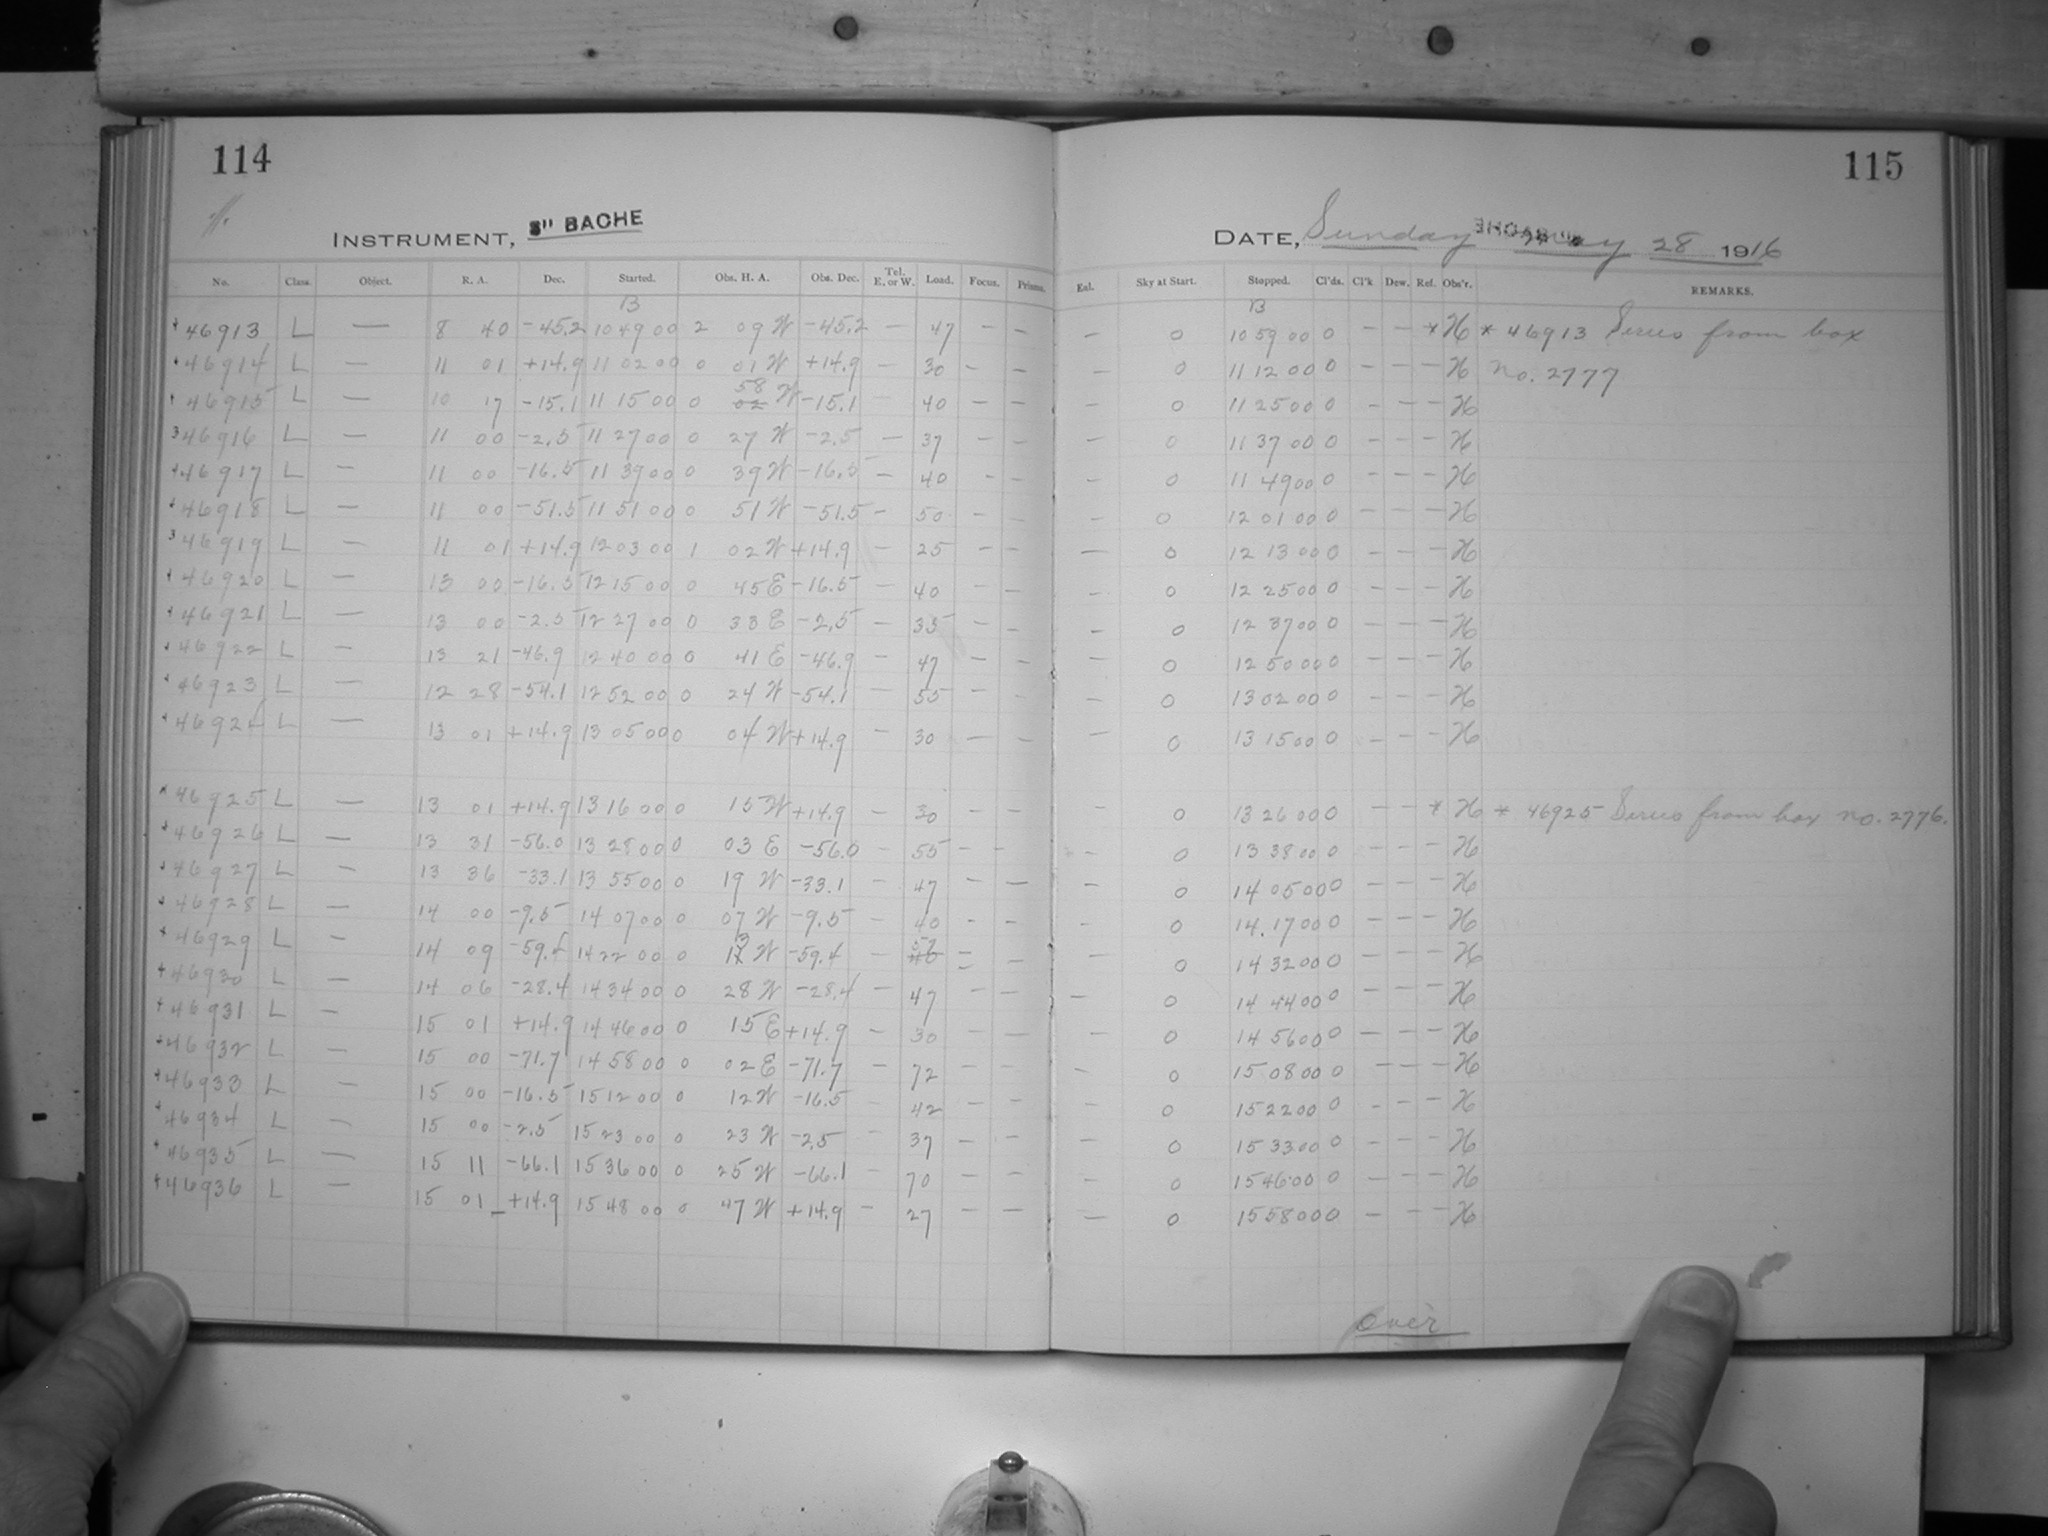 114
115
INSTRUMENT, 8" BACHE
DATE, Sunday May 28 1916
No. Class. Object. R. A. Dec. Started. Obs. H. A. Obs. Dec. Tel. E. or W. Load. Focus. Prisms. Eal. Sky at Start. Stopped. Cl'ds. Cl'k Dew. Ref. Obs'r. REMARKS.
B B
46913 L — 8 40 -45.2 10 49 00 2 09 W -45.2 — 47 — — — 0 10 59 00 0 — — * H * 46913 Series from box
46914 L — 11 01 +14.9 11 02 00 0 01 W +14.9 — 30 — — — 0 11 12 00 0 — — — H no. 2777
46915 L — 10 17 -15.1 11 15 00 0 58 W -15.1 40 — — — 0 11 25 00 0 — — — H
46916 L — 11 00 -2.5 11 27 00 0 27 W -2.5 — 37 — — — 0 11 37 00 0 — — — H
46917 L — 11 00 -16.5 11 39 00 0 39 W -16.5 — 40 — — — 0 11 49 00 0 — — — H
46918 L — 11 00 -51.5 11 51 00 0 51 W -51.5 — 50 — — — 0 12 01 00 0 — — — H
46919 L — 11 01 +14.9 12 03 00 1 02 W +14.9 — 25 — — — 0 12 13 00 0 — — — H
46920 L — 13 00 -16.5 12 15 00 0 45 E -16.5 — 40 — — — 0 12 25 00 0 — — — H
46921 L — 13 00 -2.5 12 27 00 0 33 E -2.5 — 35 — — — 0 12 37 00 0 — — — H
46922 L — 13 21 -46.9 12 40 00 0 41 E -46.9 — 47 — — — 0 12 50 00 0 — — — H
46923 L — 12 28 -54.1 12 52 00 0 24 W -54.1 — 55 — — — 0 13 02 00 0 — — — H
46924 L — 13 01 +14.9 13 05 00 0 04 W +14.9 — 30 — — — 0 13 15 00 0 — — — H
46925 L — 13 01 +14.9 13 16 00 0 15 W +14.9 — 30 — — — 0 13 26 00 0 — — * H * 46925 Series from box no. 2776.
46926 L — 13 31 -56.0 13 28 00 0 03 E -56.0 — 55 — — — 0 13 38 00 0 — — — H
46927 L — 13 36 -33.1 13 55 00 0 19 W -33.1 — 47 — — — 0 14 05 00 0 — — — H
46928 L — 14 00 -9.5 14 07 00 0 07 W -9.5 — 40 — — — 0 14.17 00 0 — — — H
46929 L — 14 09 -59.4 14 22 00 0 13 W -59.4 — — — — 0 14 32 00 0 — — — H
46930 L — 14 06 -28.4 14 34 00 0 28 W -28.4 — 47 — — — 0 14 44 00 0 — — — H
46931 L — 15 01 +14.9 14 46 00 0 15 E +14.9 — 30 — — — 0 14 56 00 0 — — — H
46932 L — 15 00 -71.7 14 58 00 0 02 E -71.7 — 72 — — — 0 15 08 00 0 — — — H
46933 L — 15 00 -16.5 15 12 00 0 12 W -16.5 — 42 — — — 0 15 22 00 0 — — — H
46934 L — 15 00 -2.5 15 23 00 0 23 W -2.5 — 37 — — — 0 15 33 00 0 — — — H
46935 L — 15 11 -66.1 15 36 00 0 25 W -66.1 — 70 — — — 0 15 46 00 0 — — — H
46936 L — 15 01 +14.9 15 48 00 0 47 W +14.9 — 27 — — — 0 15 58 00 0 — — — H
Over